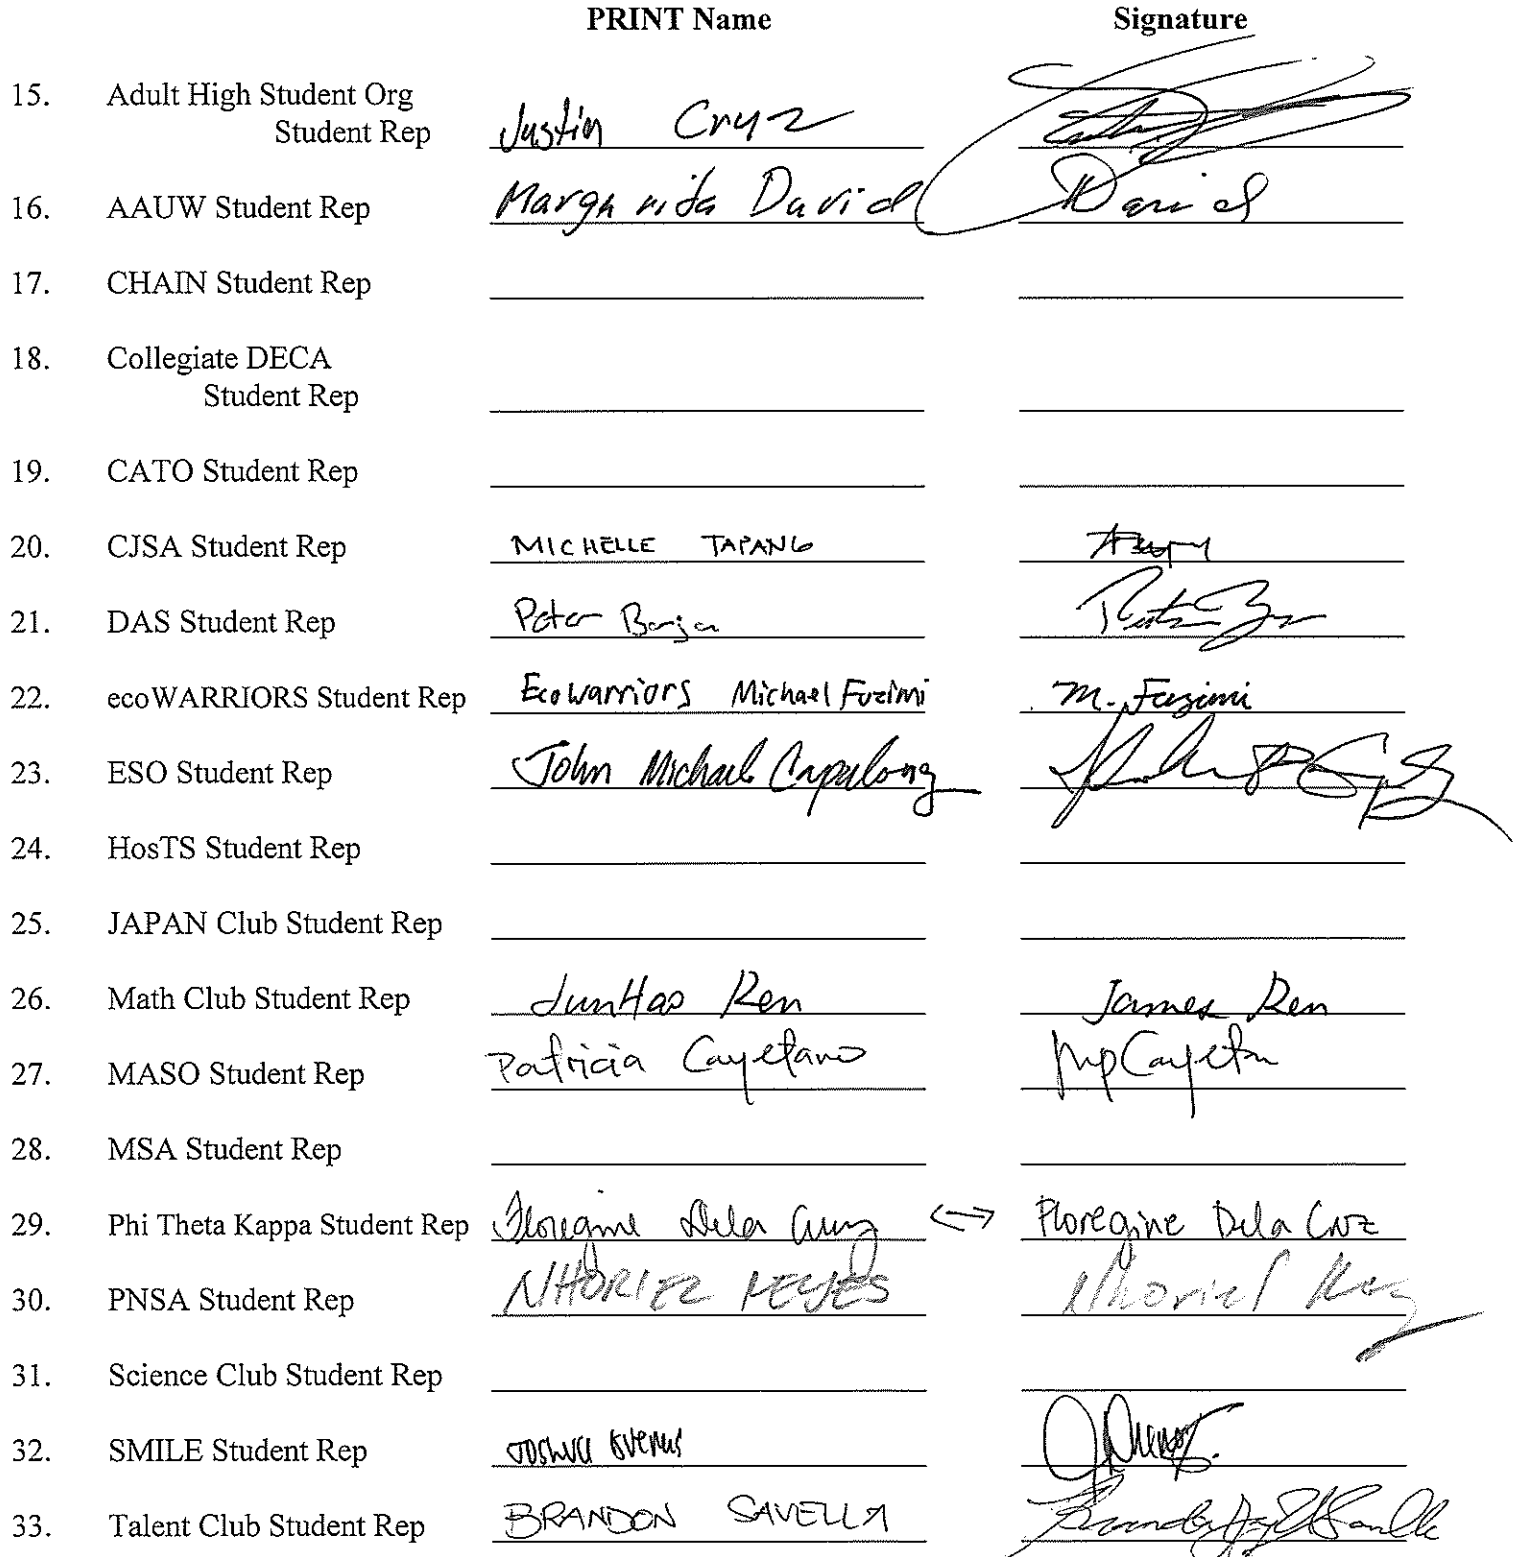 PRINT Name Signature
15. Adult High Student Org
Student Rep Justin Cruz
16. AAUW Student Rep Margarita David David
17. CHAIN Student Rep
18. Collegiate DECA
Student Rep
19. CATO Student Rep
20. CJSA Student Rep MICHELLE TAPANG
21. DAS Student Rep Peter Borja
22. ecoWARRIORS Student Rep EcoWarriors Michael Fuzimi M. Fuzimi
23. ESO Student Rep John Michael Capulong
24. HosTS Student Rep
25. JAPAN Club Student Rep
26. Math Club Student Rep JunHao Ren James Ren
27. MASO Student Rep Patricia Cayetano
28. MSA Student Rep
29. Phi Theta Kappa Student Rep Floregine Dela Cruz <-> Floregine Dela Cruz
30. PNSA Student Rep REYES
31. Science Club Student Rep
32. SMILE Student Rep Joshua
33. Talent Club Student Rep BRANDON SAVELLA